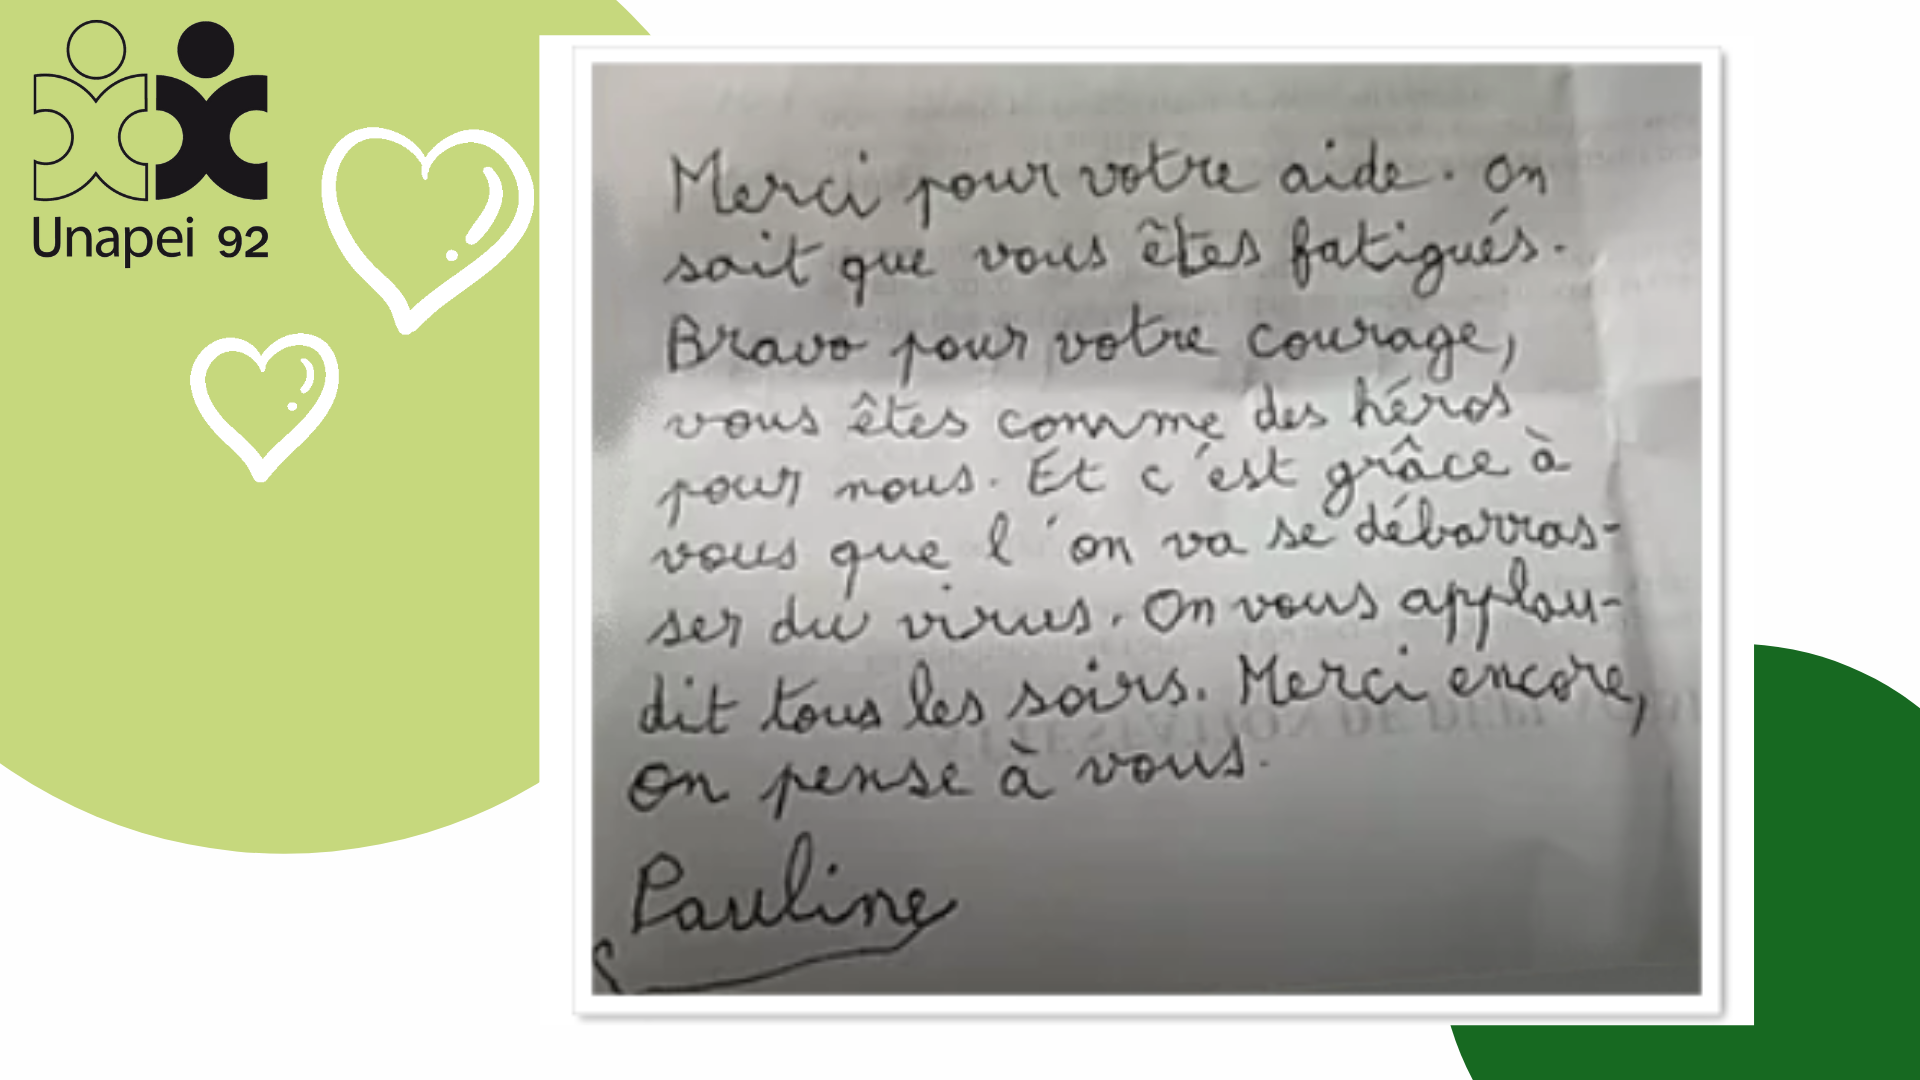 Unapei 92
Merci pour votre aide. On
sait que vous êtes fatigués.
Bravo pour votre courage,
vous êtes comme des héros
pour nous. Et c'est grâce à
vous que l'on va se débarras-
ser du virus. On vous applau-
dit tous les soirs. Merci encore,
on pense à vous.
Pauline